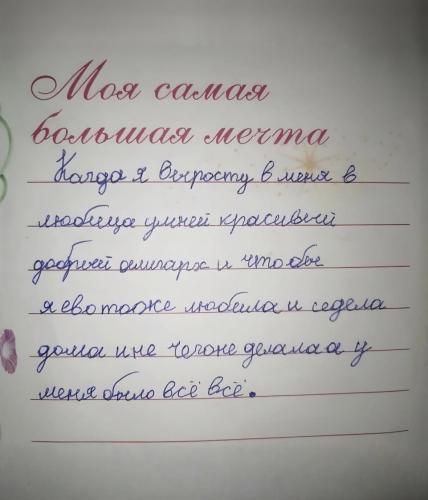 Моя самая
большая мечта
Кагда я выросту в меня в
любица умней красивый
добрей алигарх и что бы
я ево тоже любила и седела
дома и не чегоне делала а у
меня было всё всё.